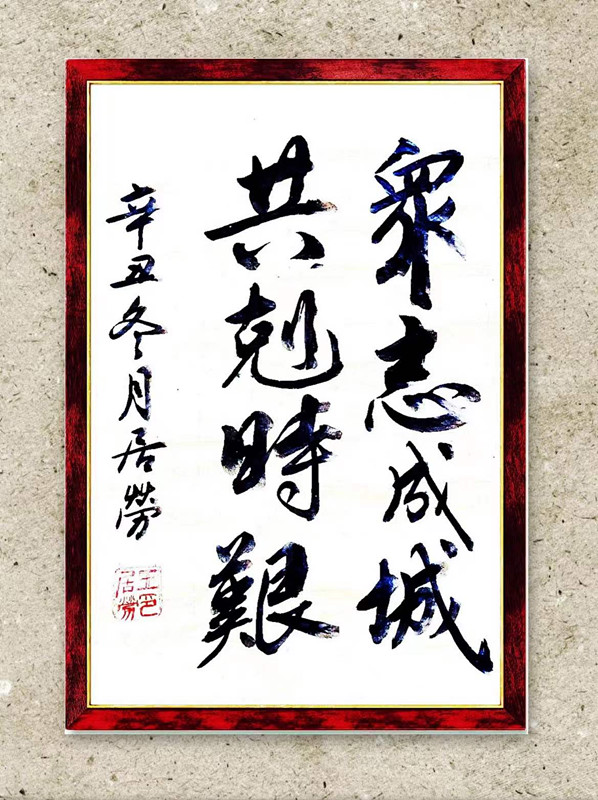 眾志成城
共剋時艱
辛丑冬月居勞
王居勞印